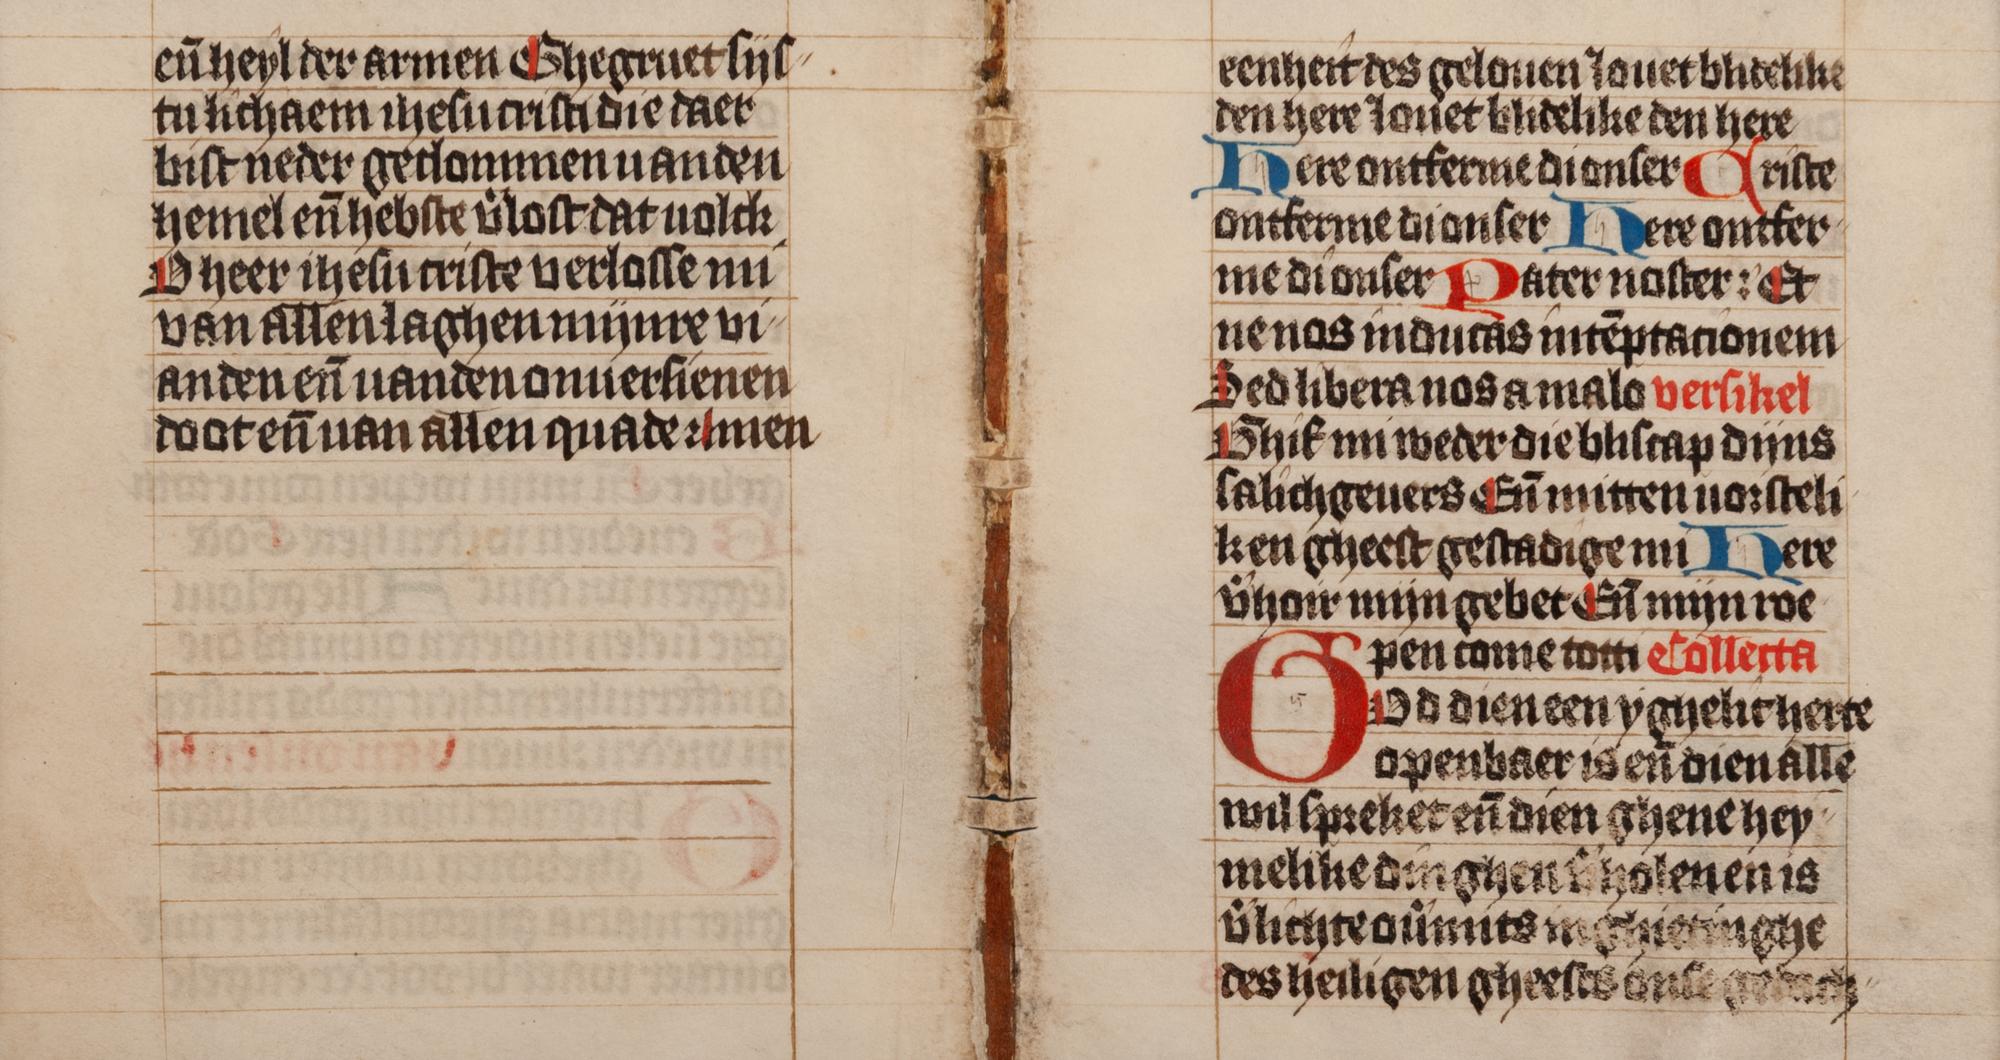 en̄ heyl der armen Ghegruet sijs
tu lichaem ihesu cristi die daer
bist neder geclommen vanden
hemel en̄ hebste v̓lost dat volck
O heer ihesu criste verlosse mi
van allen laghen mijnre vi
anden en̄ vanden onuersienen
doot en̄ van allen quade Amen
eenheit des gelouen Louet blidelike
den here Louet blidelike den here
Here ontferme di onser Criste
ontferme di onser Here ontfer
me di onser Pater noster : Et
ne nos inducas in te̅ptacionem
Sed libera nos a malo versikel
Ghif mi weder die bliscap dijns
salichgeuers En̄ mitten vorsteli
ken gheest gestadige mi Here
v̓hoir mijn gebet En̄ mijn roe
pen come totti Collecta
God dien een yghelic herte
openbaer is en̄ dien alle
wil spreket en̄ dien ghene hey
melike dinghen v̓holen en is
v̓lichte ou̓mits inghietinghe
des heiligen gheests onse gedach